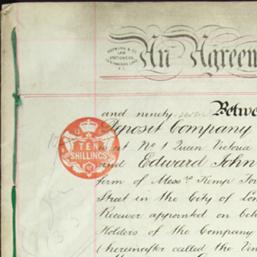 An Agreem
TEN
SHILLINGS
and ninety seven Betwe
Deposit Company
at No 1 Queen Victoria
and Edward John
firm of Messrs Kemp For
Street in the City of Lon
Receiver appointed on
Holders of the Company
(hereinafter called the Ven